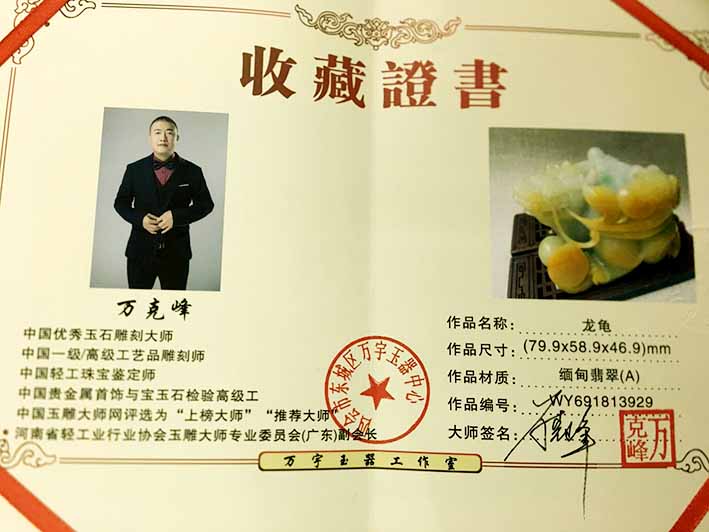 收藏證書
万克峰
中国优秀玉石雕刻大师
中国一级/高级工艺品雕刻师
中国轻工珠宝鉴定师
中国贵金属首饰与宝玉石检验高级工
中国玉雕大师网评选为“上榜大师”“推荐大师”
*河南省轻工业行业协会玉雕大师专业委员会(广东)副会长
四会市东城区万宇玉器中心
作品名称: 龙龟
作品尺寸: (79.9x58.9x46.9)mm
作品材质: 缅甸翡翠(A)
作品编号: WY691813929
大师签名:
万克峰
万宇玉器工作室